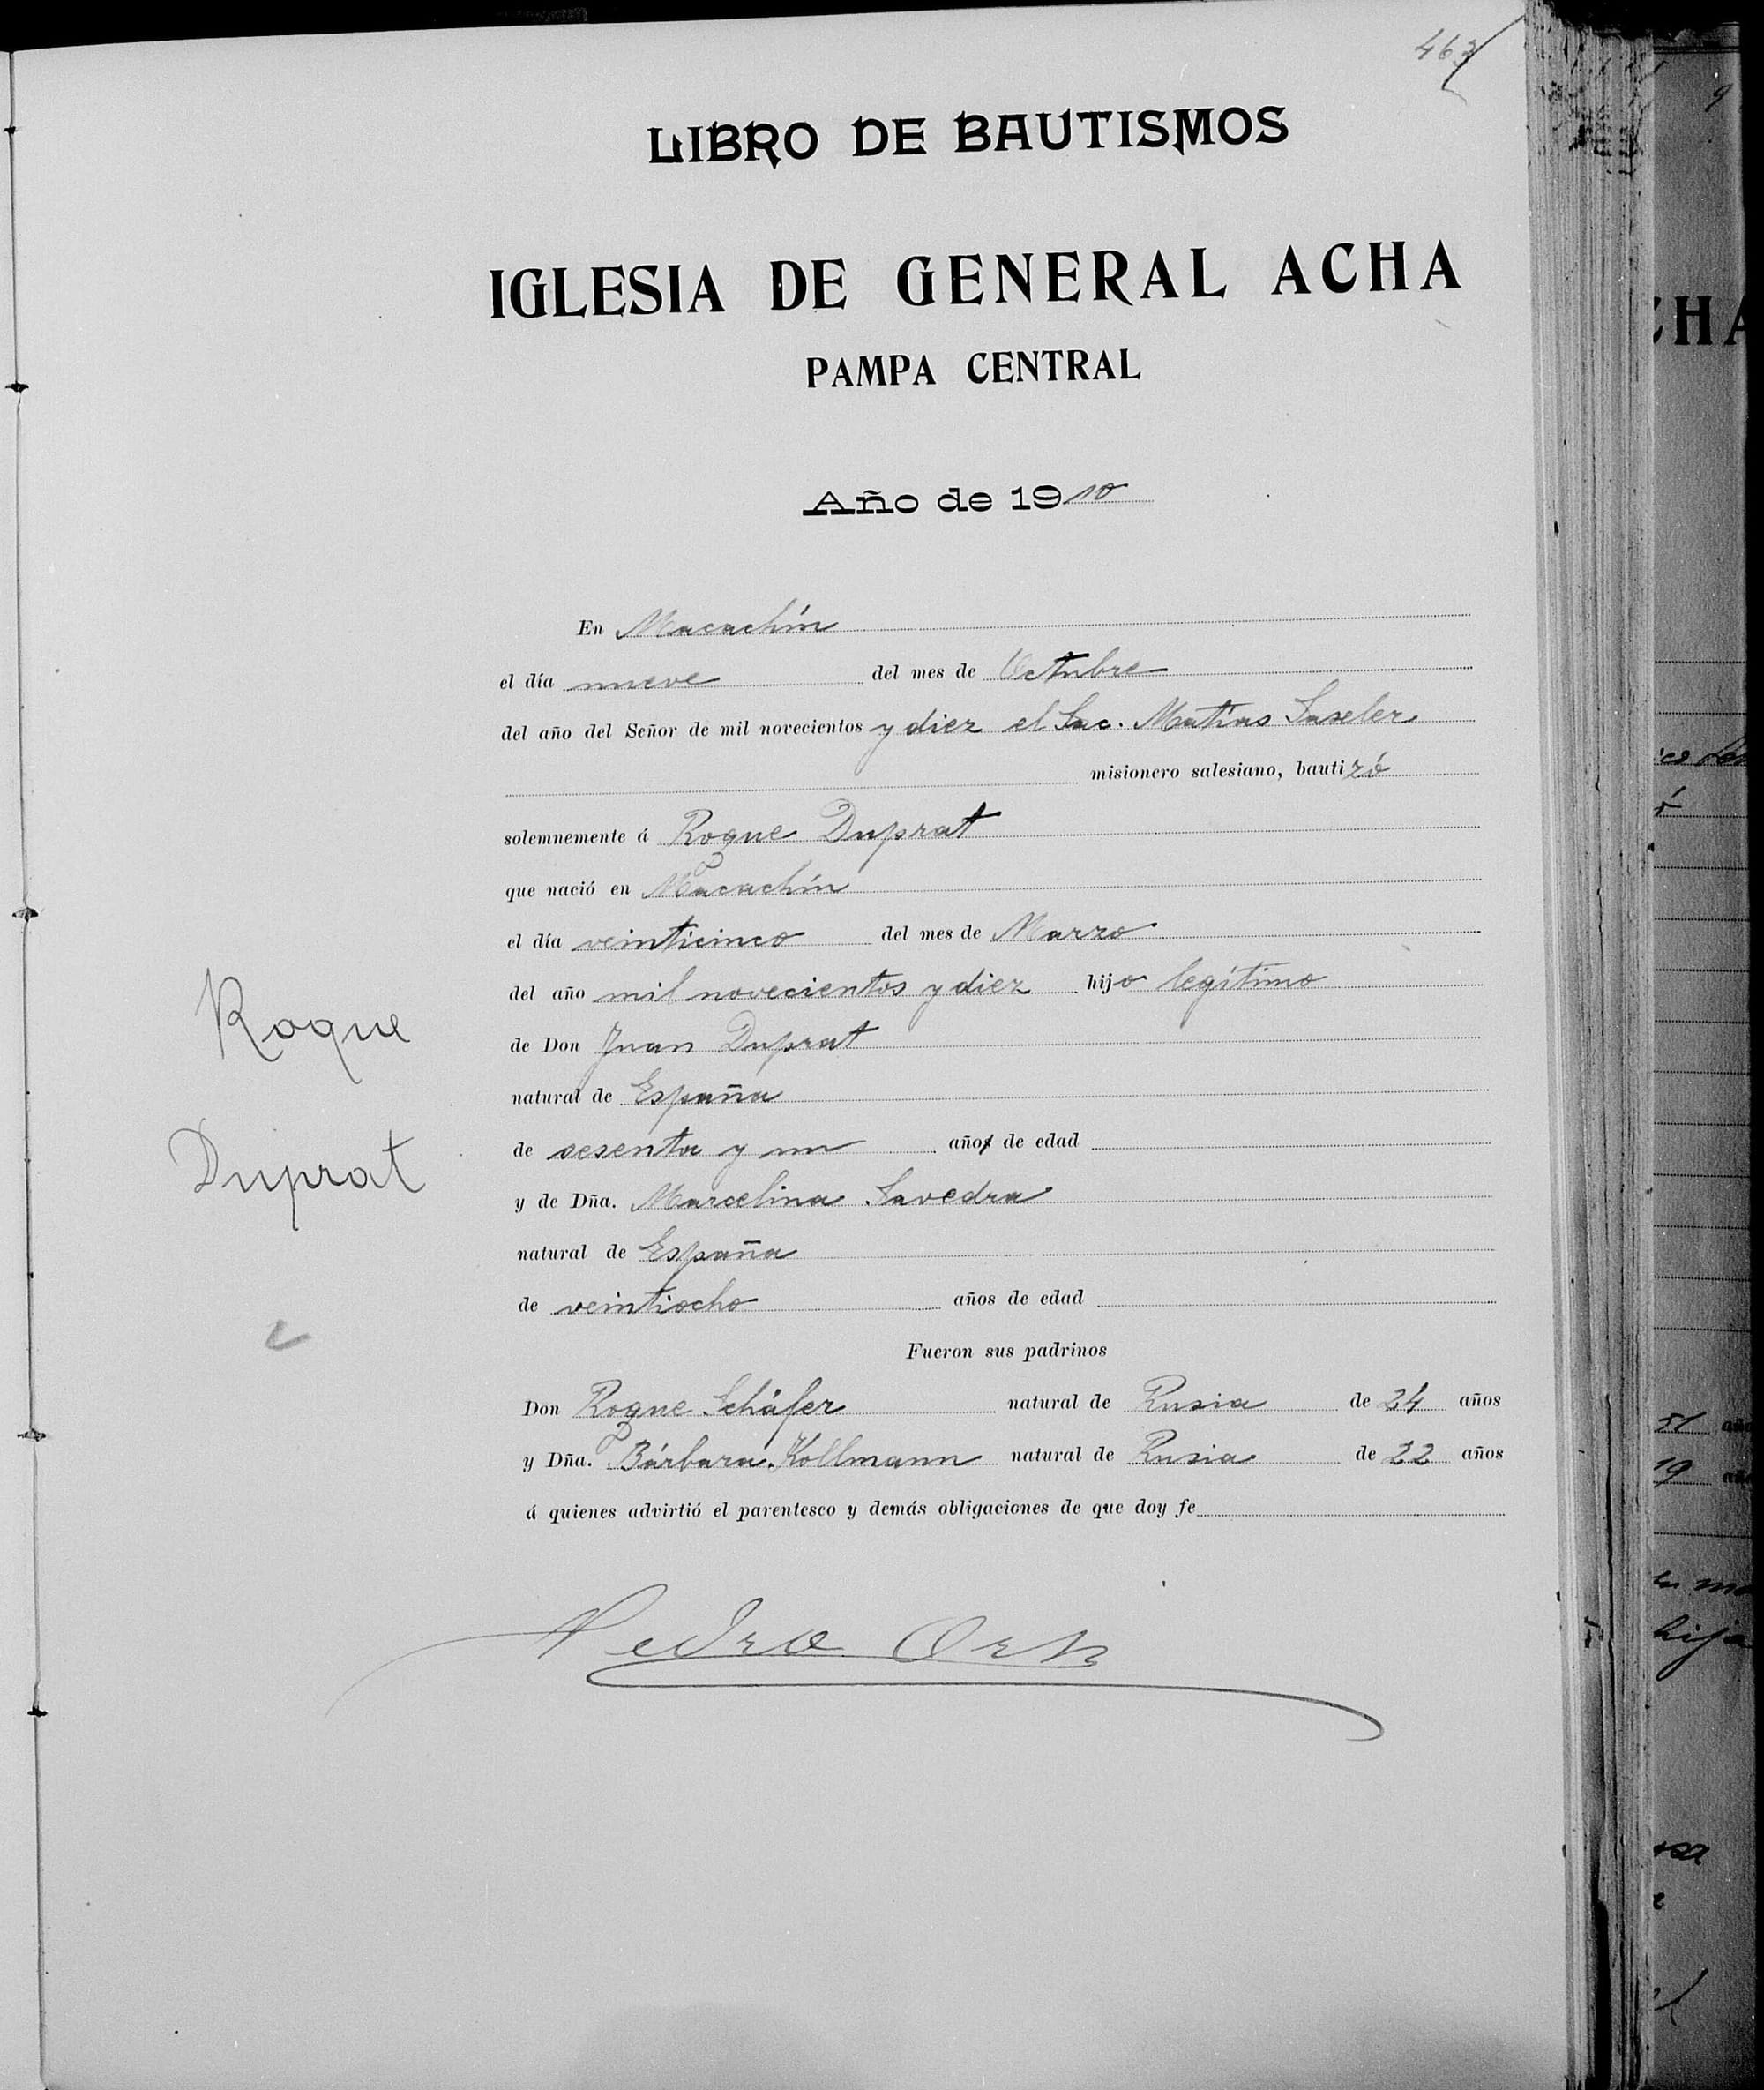 463
LIBRO DE BAUTISMOS
IGLESIA DE GENERAL ACHA
PAMPA CENTRAL
Año de 1910
En Macachín
el día nueve del mes de Octubre
del año del Señor de mil novecientos y diez el Sac. Matías Saxeler
misionero salesiano, bautizó
solemnemente á Roque Duprat
que nació en Macachín
el día veinticinco del mes de Marzo
del año mil novecientos y diez hijo legítimo
Roque
de Don Juan Duprat
natural de España
de sesenta y un año de edad
Duprat
y de Dña. Marcelina Savedra
natural de España
de veintiocho años de edad
Fueron sus padrinos
Don Roque Schäfer natural de Rusia de 24 años
y Dña. Bárbara Kollmann natural de Rusia de 22 años
á quienes advirtió el parentesco y demás obligaciones de que doy fe
Pedro Orsi